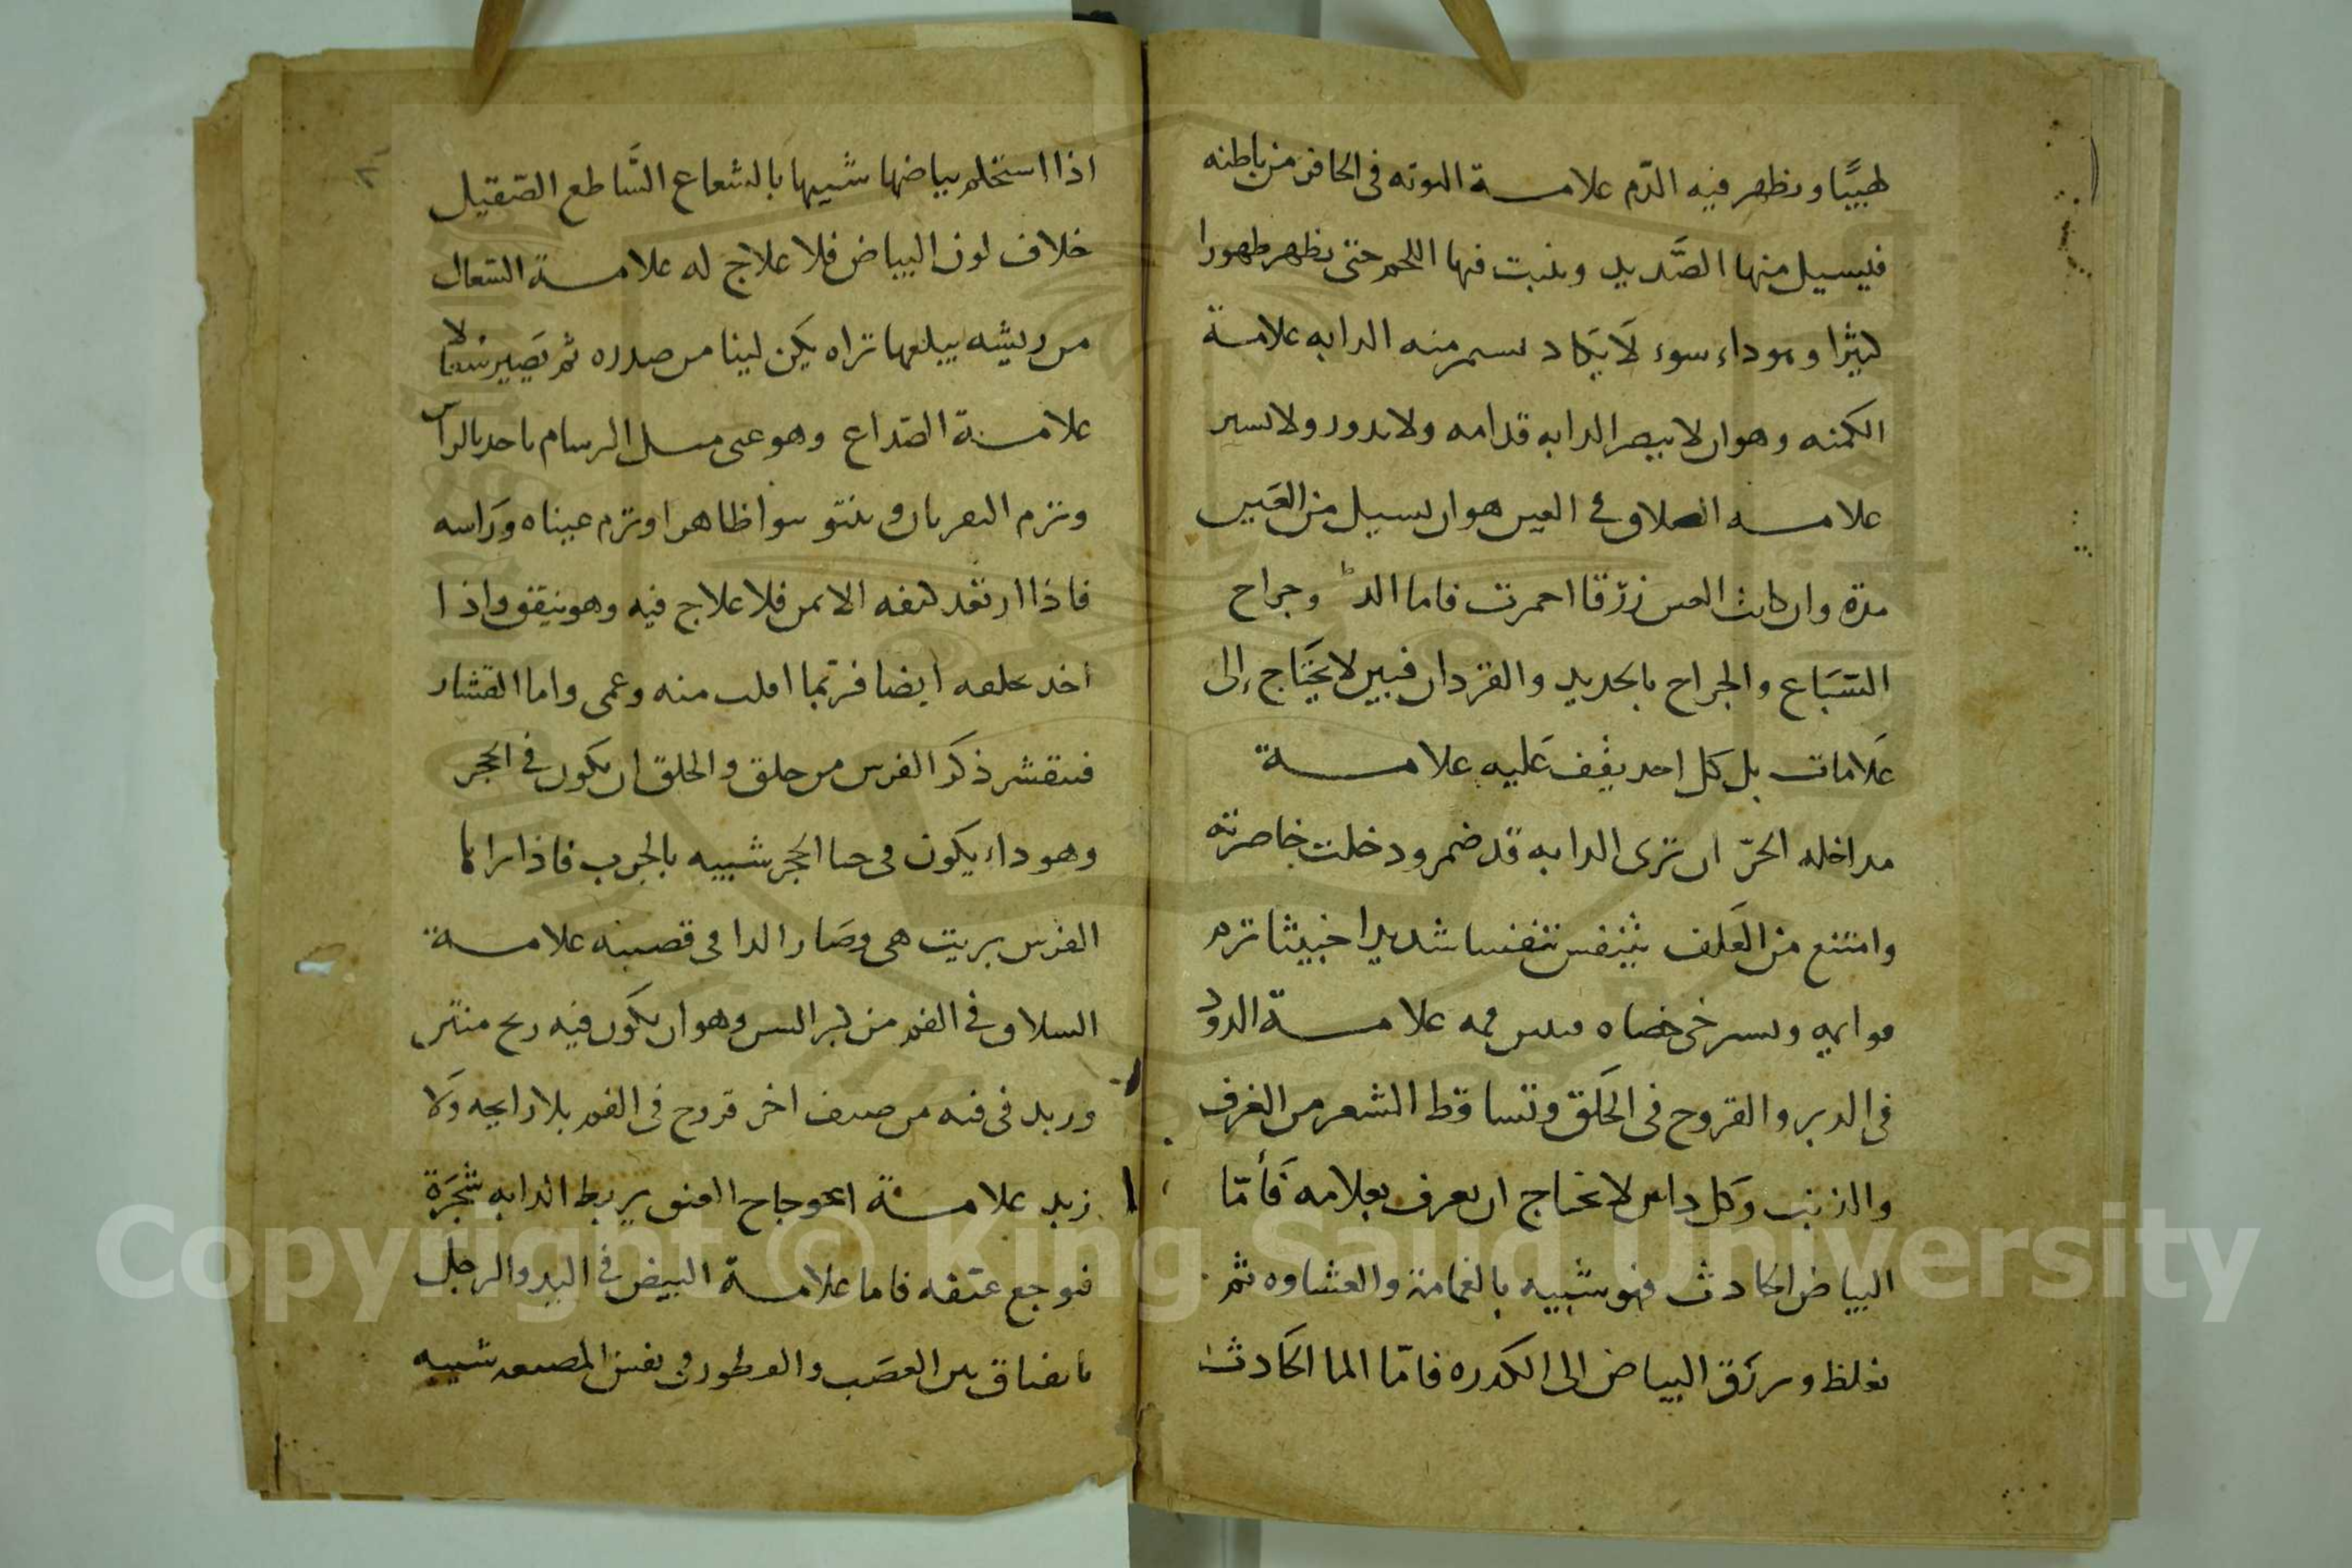 طبيبًا ويظهر فيه الدّم علامة التوته فى الحافر من باطنه
فيسيل منها الصَّديد وينبت فيها اللحم حتى يظهر ظهورا
كثيرا وهو داء سوء لَا يكاد منه الدابه علامة
الكمنه وهو ان لا يبصر الدابه قدامه ولا يدور ولا يسير
علامة السلاق فى العين هو ان يسيل من العَين
مدة وان كانت العين زرّقا احمرت فاما وجراح
السّبَاع والجراح بالحديد والقردان فبين لا يحتَاج إلى
عَلامات بل كل احد يقف عَليه علامة
مداخله الحرّ ان ترى الدابه قد ضمر ودخلت خاصرته
وامتنع من العَلف يتنفس تنفسا شديدا خبيثا ترم
قوايمه ويسترخى خصاه فمه علامة الدود
فى الدبر والقروح فى الحَلق وتساقط الشعر من العرف
والذنب وَكل داس لا يحتاج ان يعرف بعلامه فَأمّا
البياض الحادث فهو شبيه بالغمامة والغشاوه ثم
يغلظ ويرَق البياض الى الكدره فامّا الما الحَادث
اذا استحكم بياضها شبيها بالشعاع السَّاطع الصّقيل
خلاف لون البياض فلا علاج له علامة السّعال
من ريشه يبلعها تراه يكَن لينا من صدره ثم يَصير
علامة الصّداع وهو عى مثل البرسام ياخد بالراس
وترم وينتو نتوا ظاهرا وترم عيناه ورَاسه
فاذا ارتعد كتفه الايمن فلا علاج فيه وهو ينفق واذا
اخد بحلقه ايضا فربّما افلت منه وعمى واما القشار
فينقشر ذكَر الفرس من حلق والحلق ان يكون فى الحجر
وهو داء يكون فى حيا الحجر شبيه بالجرب فاذا نزاها
الفرس بريت هى وصَار الدا فى قصبته علامة
السلاق فى الفم من كبر السن وهو ان يكَون فيه ريح منتن
وزبد فى فمه من صنف اخر قروح فى الفم بلا رايحه وَلا
زبد علامة اعوجاج العنق يربط الدابه شجَرة
فيوجع عنقه فاما علامة البيض فى اليد والرجل
بين العصَب والعرطوز وفى نفس شبيه